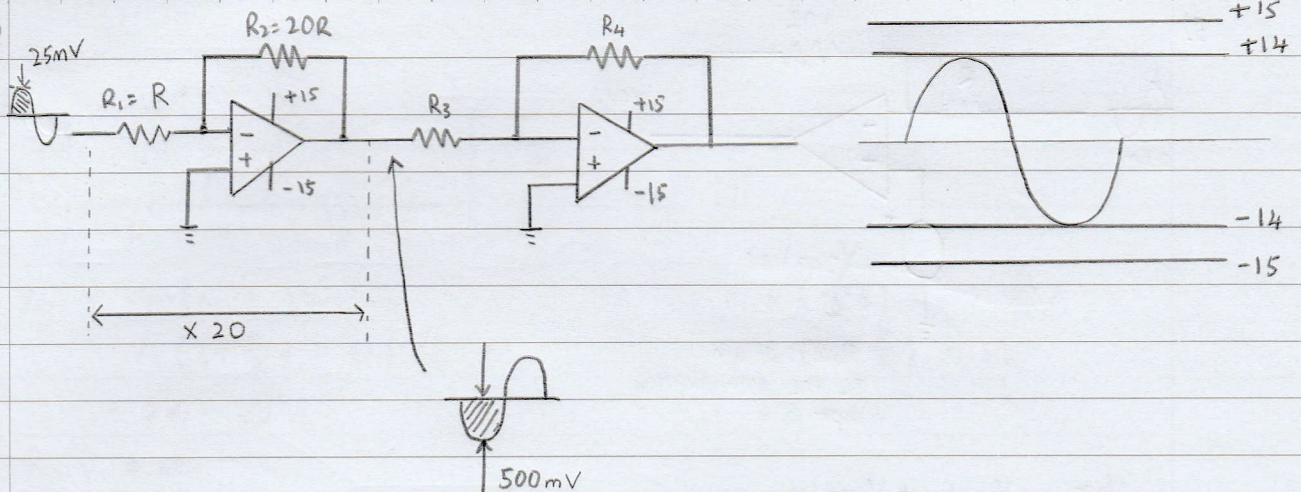 25mV
R₁= R
R₂=20R
-
+
+15
-15
R₃
R₄
-
+
+15
-15
+15
+14
-14
-15
x 20
500mV